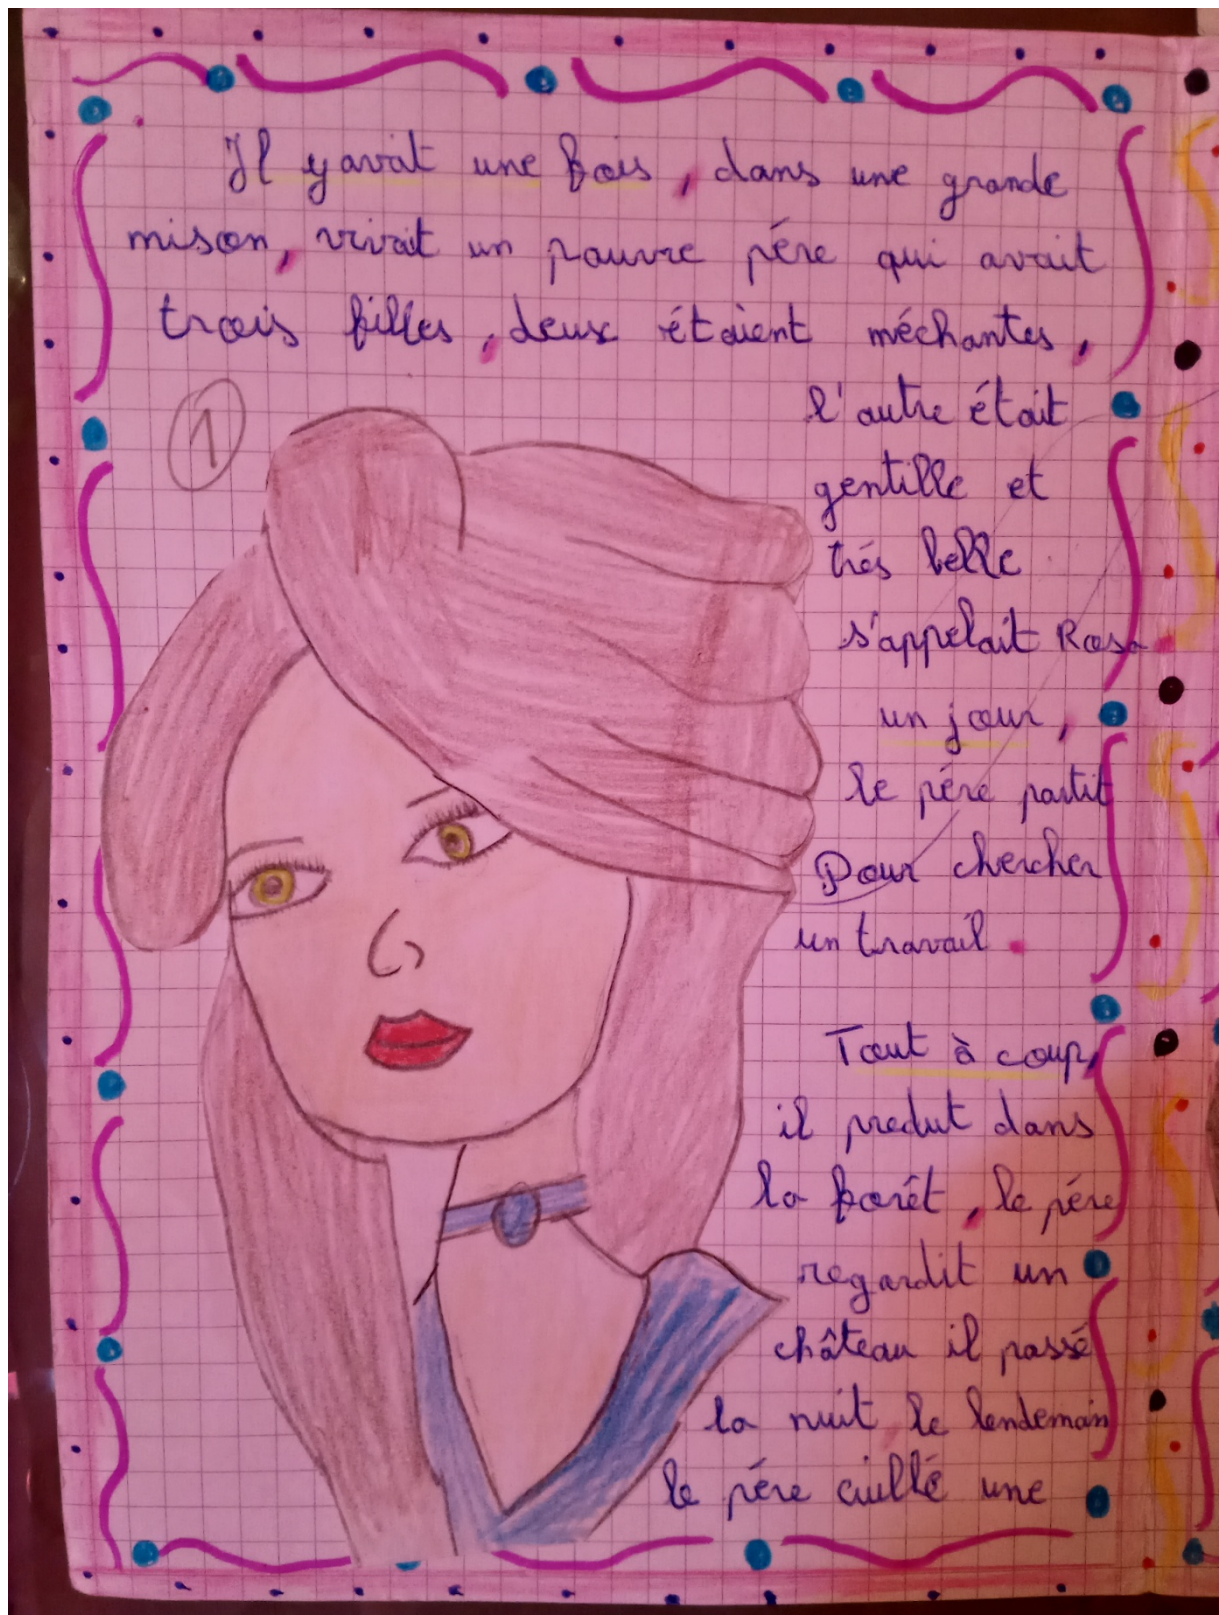 Il y avait une fois, dans une grande
mison, vivait un pauvre pére qui avait
trois filles, deux étaient méchantes,
l'autre était
1
gentille et
trés belle
s'appelait Rosa
un jour,
le pére partit
Pour chercher
un travail.
Tout à coup,
il predut dans
la forêt, le pére
regardit un
château il passé
la nuit le lendemain
le pére cuillé une